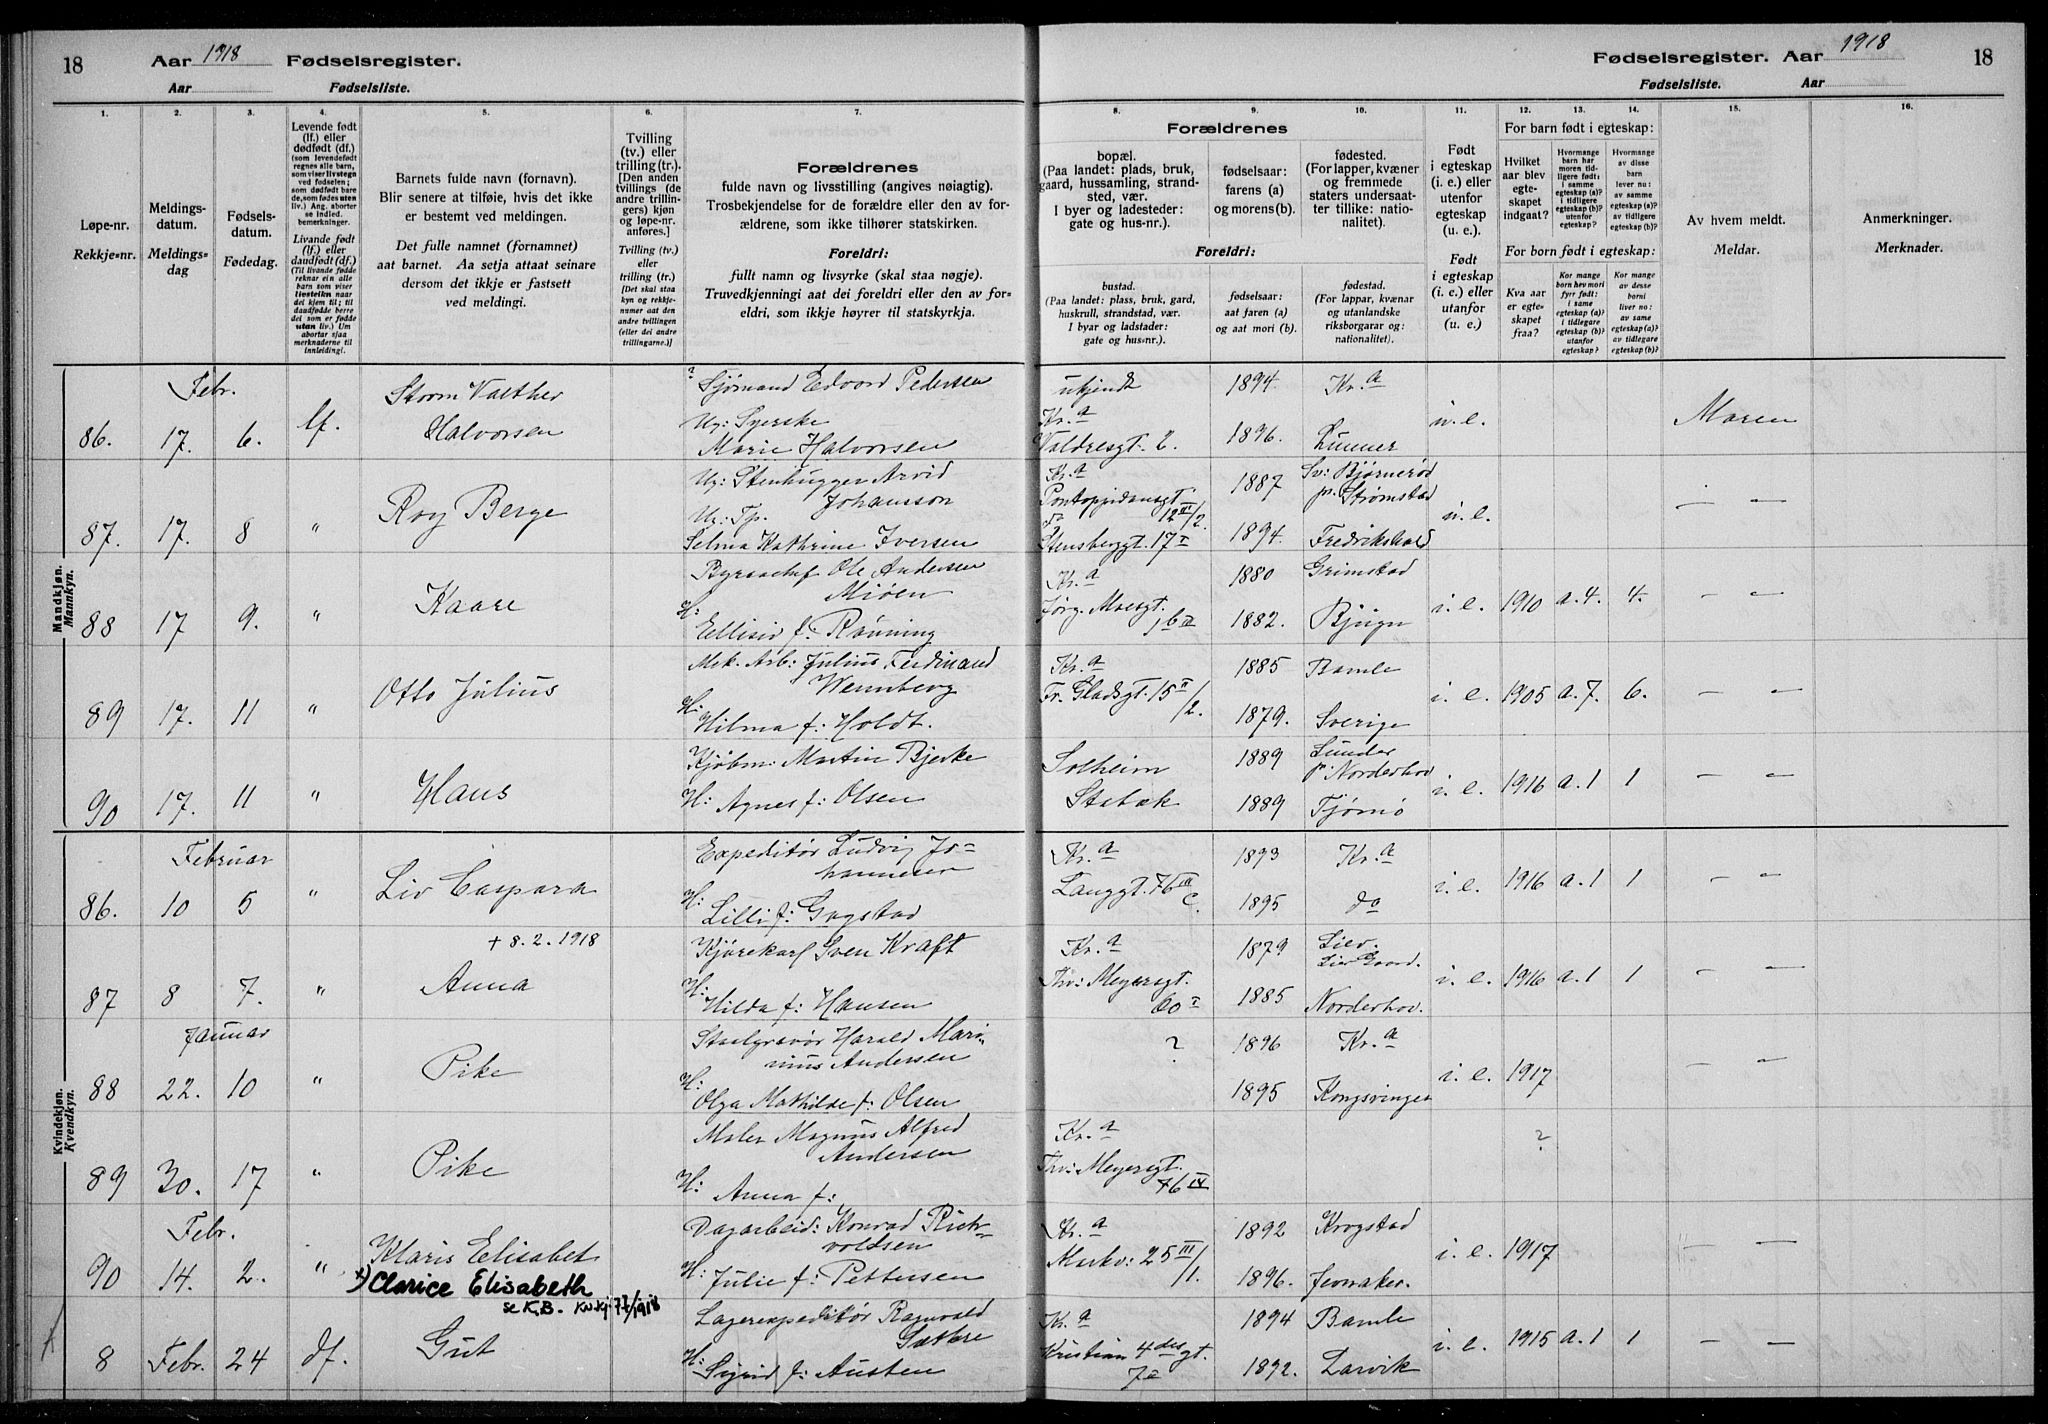 18 Aar 1918 Fødselsregister.
Aar Fødselsliste.
Fødselsregister. Aar 1918 18
Fødselsliste. Aar
1. 2. 3. 4. 5. 6. 7. 8. 9. 10. 11. 12. 13. 14. 15. 16.
Løpe-nr.
Rekkje-nr.
Meldings-
datum.
Meldings-
dag
Fødsels-
datum.
Fødedag.
Levende født
(lf.) eller
dødfødt (df.)
(som levendefødt
regnes alle barn,
som viser livstegn
ved fødselen;
som dødfødt bare
de, som fødes uten
liv.) Ang. aborter
se indled.
bemerkninger.
Livande født
(lf.) eller
daudfødt (df.)
(Til livande fødde
reknar ein alle
barn som viser
livsteikn naar
dei kjem til; til
daudfødde berre
dei som er fødde
utan liv.) Um
abortar sjaa
merknaderne til
innleidingi.
Barnets fulde navn (fornavn).
Blir senere at tilføie, hvis det ikke
er bestemt ved meldingen.
Det fulle namnet (fornamnet)
aat barnet. Aa setja attaat seinare
dersom det ikkje er fastsett
ved meldingi.
Tvilling
(tv.) eller
trilling (tr.).
[Den anden
tvillings (de
andre trillin-
gers) kjøn
og løpe-nr.
anføres.]
Tvilling (tv.)
eller
trilling (tr.)
[Det skal staa
kyn og rekkje-
numer aat den
andre tvillingen
(eller dei andre
trillingarne.)]
Forældrenes
fulde navn og livsstilling (angives nøiagtig).
Trosbekjendelse for de forældre eller den av for-
ældrene, som ikke tilhører statskirken.
Foreldri:
fullt namn og livsyrke (skal staa nøgje).
Truvedkjenningi aat dei foreldri eller den av for-
eldri, som ikkje høyrer til statskyrkja.
Forældrenes
bopæl.
(Paa landet: plads, bruk,
gaard, hussamling, strand-
sted, vær.
I byer og ladesteder:
gate og hus-nr.).
fødselsaar:
farens (a)
og morens (b).
fødested.
(For lapper, kvæner
og fremmede
staters undersaat-
ter tillike: natio-
nalitet).
Foreldri:
bustad.
(Paa landet: plass, bruk, gard,
huskrull, strandstad, vær.
I byar og ladstader:
gate og hus-nr.).
fødselsaar:
aat faren (a)
og aat mori (b).
fødestad.
(For lappar, kvænar
og utanlandske
riksborgarar og:
nationalitet).
Født
i egteskap
(i. e.) eller
utenfor
egteskap
(u. e.).
Født
i egteskap
(i. e.) eller
utanfor
(u. e.).
For barn født i egteskap:
Hvilket
aar blev
egte-
skapet
indgaat?
Hvormange
barn har
moren tid-
ligere født:
i samme
egteskap (a)?
i tidligere
egteskap (b)?
utenfor
egteskap?
Hvormange
av disse
barn
lever nu:
av samme
egteskap (a)?
av tidligere
egteskap (b)?
For born født i egteskap:
Kva aar
er egte-
skapet
fraa?
Kor mange
born hev mori
fyrr født:
i same
egteskap (a)?
i tidlegare
egteskap (b)?
utanfor
egteskap?
Kor mange
av desse
borni
liver no:
av same
egteskap (a)?
av tidlegare
egteskap (b)?
Av hvem meldt.
Meldar.
Anmerkninger.
Merknader.
Mandkjøn.
Mannkyn.
Febr. Storm Valther ? Sjømand Edvard Pedersen ukjendt 1894 Kr.a
86. 17. 6. lf. Halvorsen Ug: Syerske Kr.a u.e. Moren
Marie Halvorsen Valdresgt. 2. 1896. Lunner
Ug: Stenhugger Arvid Kr.a 1887 Sv: Bjørnerød
Roy Berge Johansson Pontoppidansgt 12 III/2. pr. Strømstad
87. 17. 8 " Ug: Tp. do 1894. u.e. — " —
Selma Kathrine Iversen Stensberggt. 17 I Fredrikshald
Ole Andersen Kr.a 1880 Grimstad
88 17 9. " Kaare Miøen Jørg. Moesgt. i.e. 1910 a.4. 4. — " —
H: Ellisiv f: Rønning 16 II 1882. Bjugn
Mek. Arb: Julius Ferdinand Kr.a 1885 Bamle
89 17. 11 " Otto Julius Wennberg Fr. Gladsgt. 15 II/2. i.e. 1905 a.7. 6. — " —
H: Hilma f: Holdt. 1879. Sverige
Kjøbm: Martin Bjerke Solheim 1889 Lunder
90 17. 11 " Hans p: Norderhov i.e. 1916 a.1 1 — " —
H: Agnes f: Olsen Stabæk 1889 Tjømø
Kvindekjøn.
Kvendkyn.
Februar Expeditør Ludvig Jo- Kr.a 1893 Kr.a
86. 10 5 " Liv Caspara hannesen Langgt. 76 III c. i.e. 1916 a.1 1 — " —
H: Lilli f: Gogstad 1895 do
+ 8.2.1918 Kjørekarl Sven Kraft Kr.a 1879 Lier.
Lier Gaard.
87 8 7. " Anna Thv: Meyersgt. i.e. 1916 a.1 1 — " —
H: Hilda f: Hansen 60 I 1885 Norderhov.
Januar Staalgravør Harald Mari- ? 1896 Kr.a
88 22. 10 " Pike nius Andersen i.e. 1917 — " —
H: Olga Mathilde f: Olsen 1895 Kongsvinger
Maler Magnus Alfred Kr.a ?
89 30. 17 " Pike Andersen Thv: Meyersgt.
H: Anna f: 76 IV
Febr. Dagarbeid: Konrad Rich- Kr.a 1892 Krogstad
90 14. 2. " Klaris Elisabet voldsen Markv: 25 III/1. i.e. 1917 — " —
x) Clarice Elisabeth H: Julie f: Pettersen 1896. Jevnaker.
se K.B.
Lagerexpeditør Ragnvald Kr.a 1894 Bamle
8 Febr. 24 df. Gut Sættre Kristian 4des gt. i.e. 1915 a.1 1 — " —
H: Sigrid f: Austen 7a 1892. Larvik